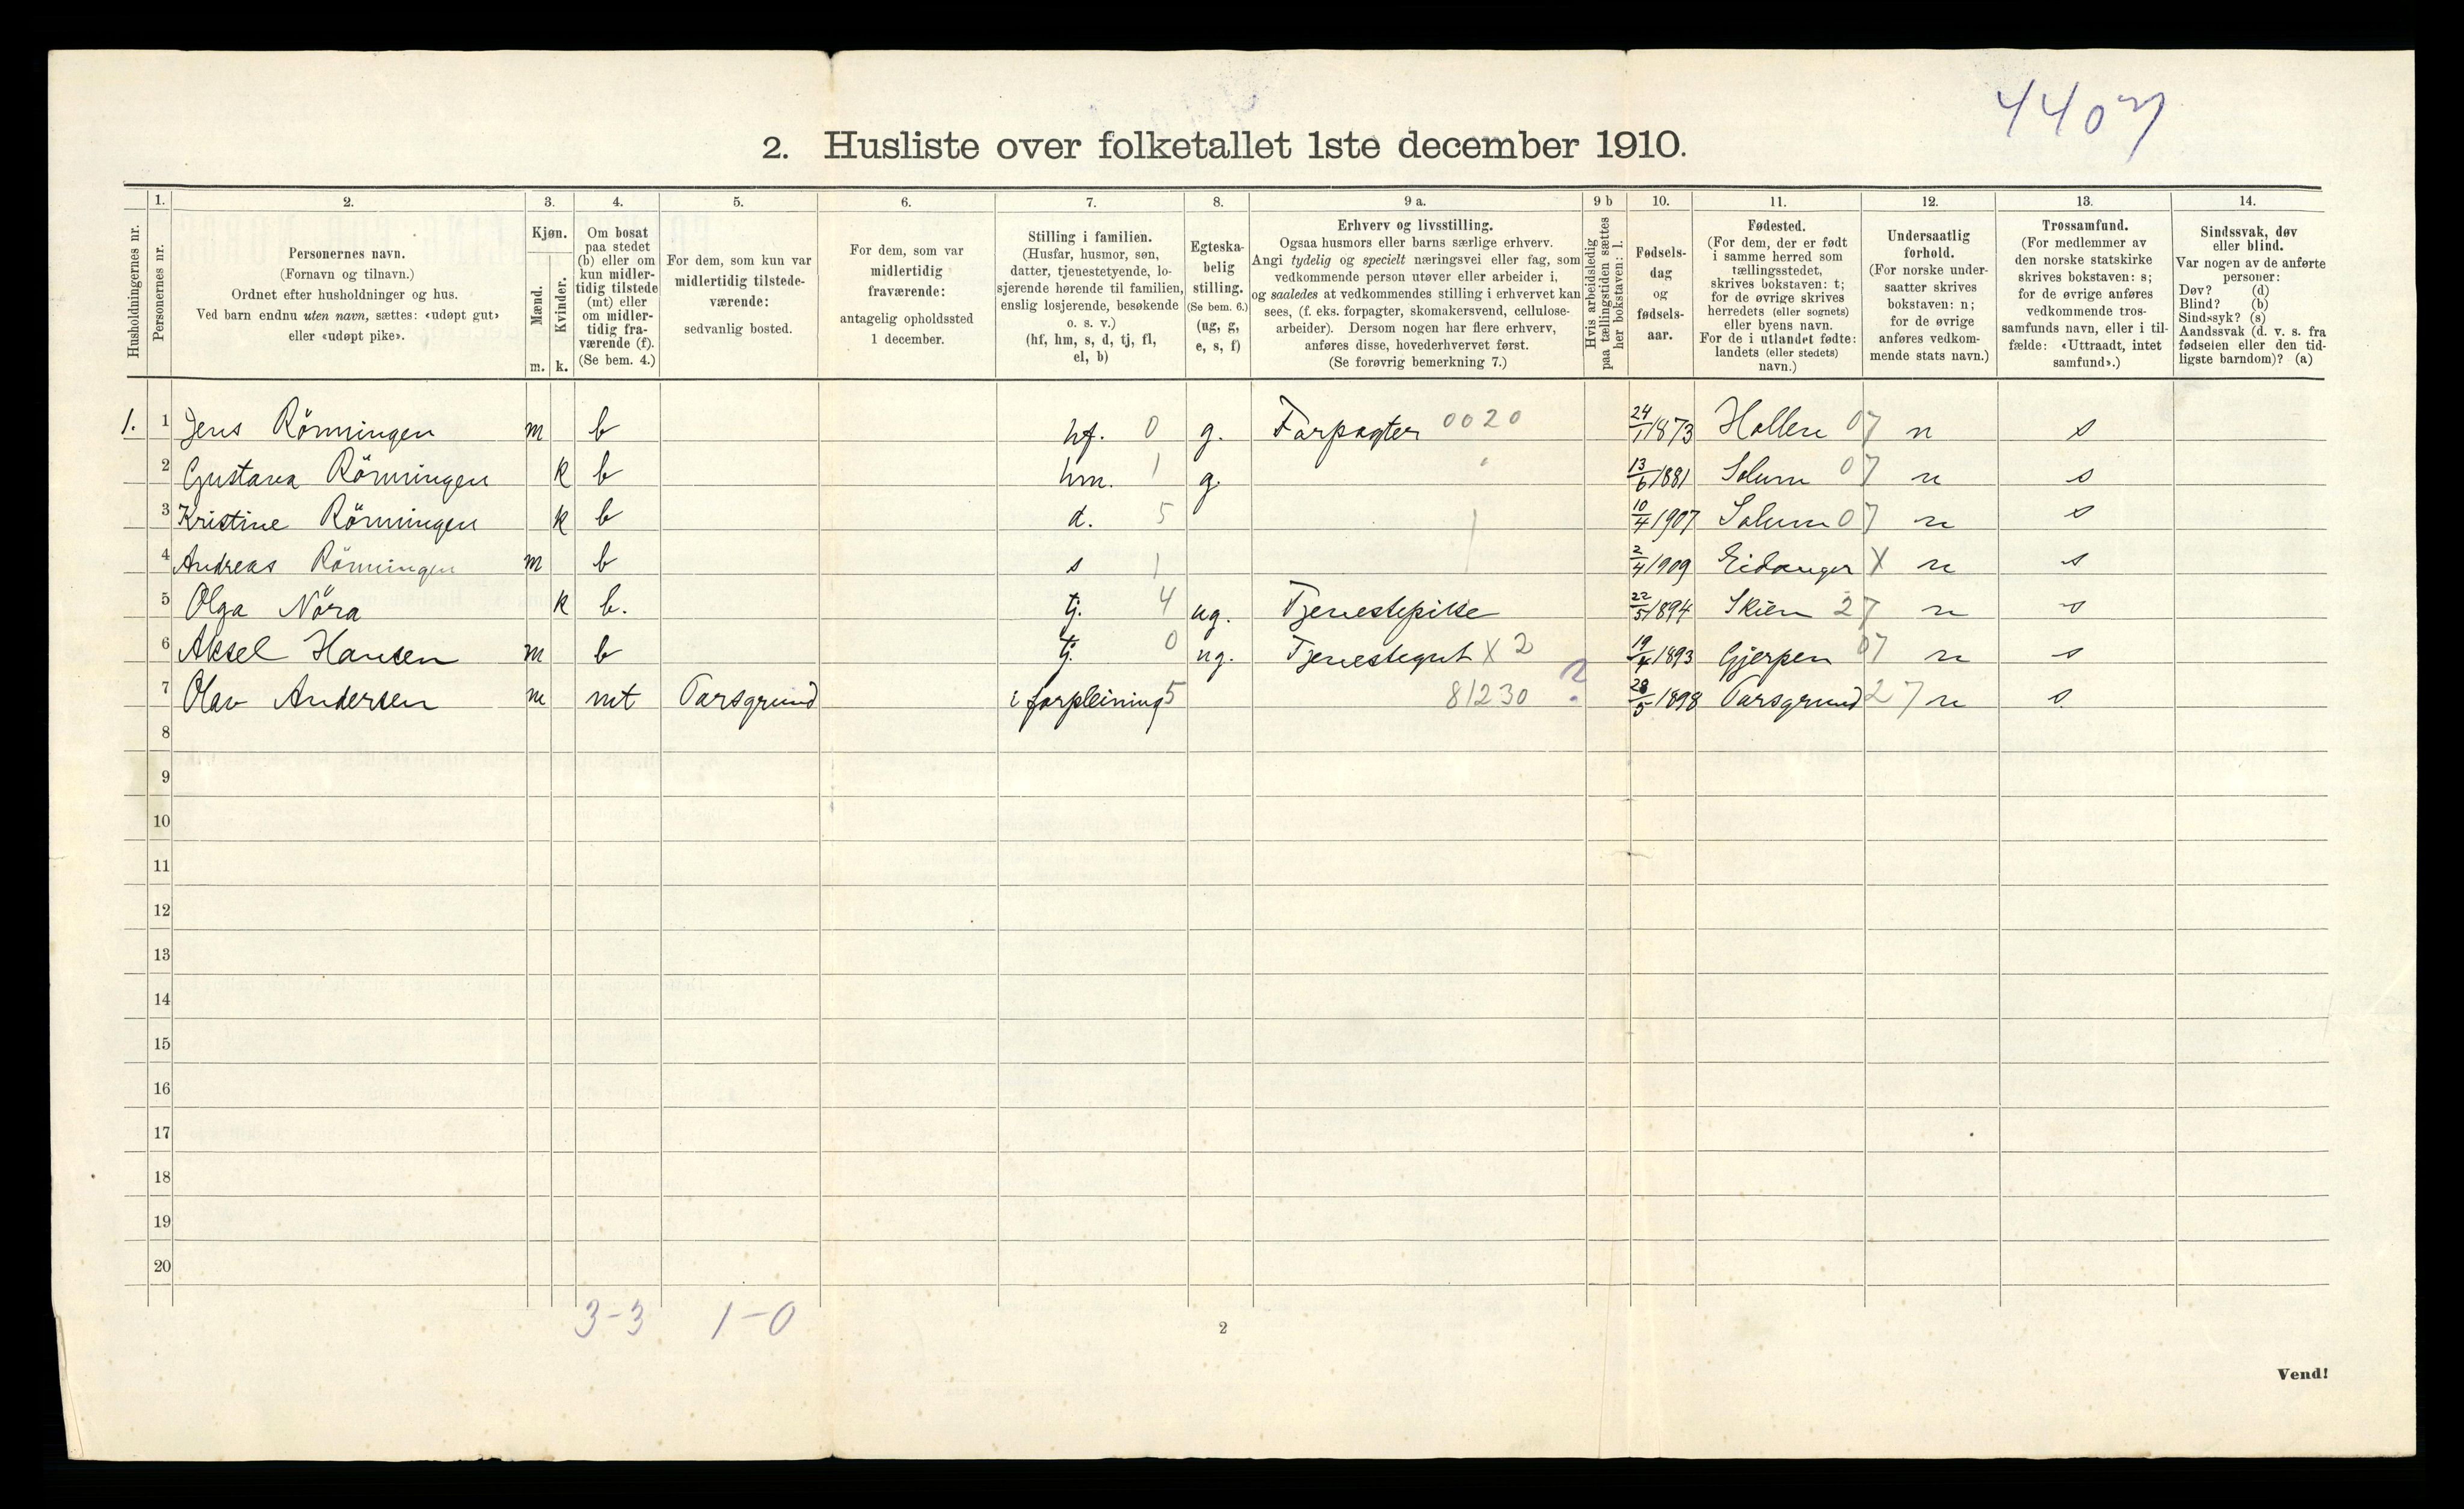 440
2. Husliste over folketallet 1ste december 1910.
Husholdningernes nr.
1. Personernes nr.
2. Personernes navn.
(Fornavn og tilnavn.)
Ordnet efter husholdninger og hus.
Ved barn endnu uten navn, sættes: «udøpt gut»
eller «udøpt pike».
3. Kjøn.
Mænd. Kvinder.
m. k.
4. Om bosat
paa stedet
(b) eller om
kun midler-
tidig tilstede
(mt) eller
om midler-
tidig fra-
værende (f).
(Se bem. 4.)
5. For dem, som kun var
midlertidig tilstede-
værende:
sedvanlig bosted.
6. For dem, som var
midlertidig
fraværende:
antagelig opholdssted
1 december.
7. Stilling i familien.
(Husfar, husmor, søn,
datter, tjenestetyende, lo-
sjerende hørende til familien,
enslig losjerende, besøkende
o. s. v.)
(hf, hm, s, d, tj, fl,
el, b)
8. Egteska-
belig
stilling.
(Se bem. 6.)
(ug, g,
e, s, f)
9 a. Erhverv og livsstilling.
Ogsaa husmors eller barns særlige erhverv.
Angi tydelig og specielt næringsvei eller fag, som
vedkommende person utøver eller arbeider i,
og saaledes at vedkommendes stilling i erhvervet kan
sees, (f. eks. forpagter, skomakersvend, cellulose-
arbeider). Dersom nogen har flere erhverv,
anføres disse, hovederhvervet først.
(Se forøvrig bemerkning 7.)
9 b Hvis arbeidsledig
paa tællingstiden sættes
her bokstaven: l.
10. Fødsels-
dag
og
fødsels-
aar.
11. Fødested.
(For dem, der er født
i samme herred som
tællingsstedet,
skrives bokstaven: t;
for de øvrige skrives
herredets (eller sognets)
eller byens navn.
For de i utlandet fødte:
landets (eller stedets)
navn.)
12. Undersaatlig
forhold.
(For norske under-
saatter skrives
bokstaven: n;
for de øvrige
anføres vedkom-
mende stats navn.)
13. Trossamfund.
(For medlemmer av
den norske statskirke
skrives bokstaven: s;
for de øvrige anføres
vedkommende tros-
samfunds navn, eller i til-
fælde: «Uttraadt, intet
samfund».)
14. Sindssvak, døv
eller blind.
Var nogen av de anførte
personer:
Døv? (d)
Blind? (b)
Sindssyk? (s)
Aandssvak (d. v. s. fra
fødselen eller den tid-
ligste barndom)? (a)
1. 1 Jens Rönningen m b hf. 0 g. Forpagter 0020 24/1 1873 Hollen 07 n s
2 Gustava Rönningen k b hm. 1 g. 13/6 1881 Solum 07 n s
3 Kristine Rönningen k b d. 5 10/4 1907 Solum 07 n s
4 Andreas Rönningen m b s 1 2/4 1909 Eidanger X n s
5 Olga Nöra k b. tj. 4 ug. Tjenestepike 22/5 1894 Skien 27 n s
6 Aksel Hansen m b tj. 0 ug. Tjenestegut X 2 19/4 1893 Gjerpen 07 n s
7 Olav Andersen m mt Porsgrund i forpleining 5 81230 ? 28/5 1898 Porsgrund 27 n s.
8
9
10
11
12
13
14
15
16
17
18
19
20
3-3 1-0
2
Vend!